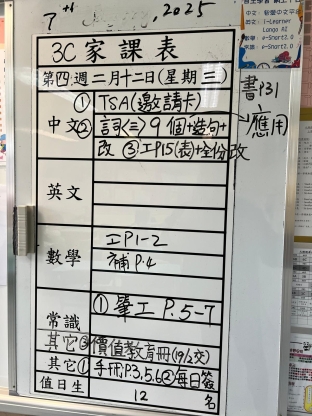 7th
, 2025
3C 家課表
第四週二月十二日(星期三)
中文
① TSA(邀請卡)
② 詞<三>9個+造句+
書P31
應用
改 ③ 工P15(表)+全份改
英文
數學
工P1-2
補P.4
常識
① 筆工 P.5-7
其它③ 價值教育冊(19/2交)
其它① 手冊P3,5,6②每日簽名
值日生 12
中文:智愛中文平台
英文: i-Learner
Lango AI
數學: e-Smart2.0
常識: e-Smart2.0